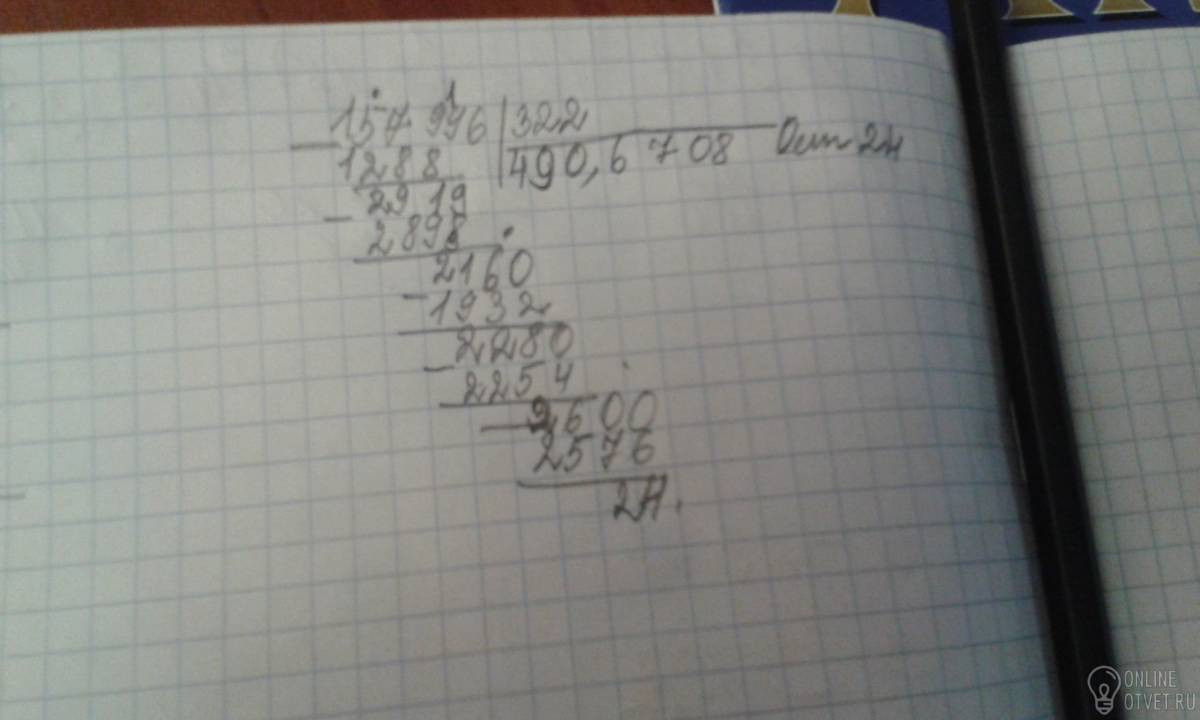 157 996 322
1288 490,6 708 Ост 24
2919
2898
2160
1932
2280
2254
2600
2576
24.
ONLINE
OTVET.RU